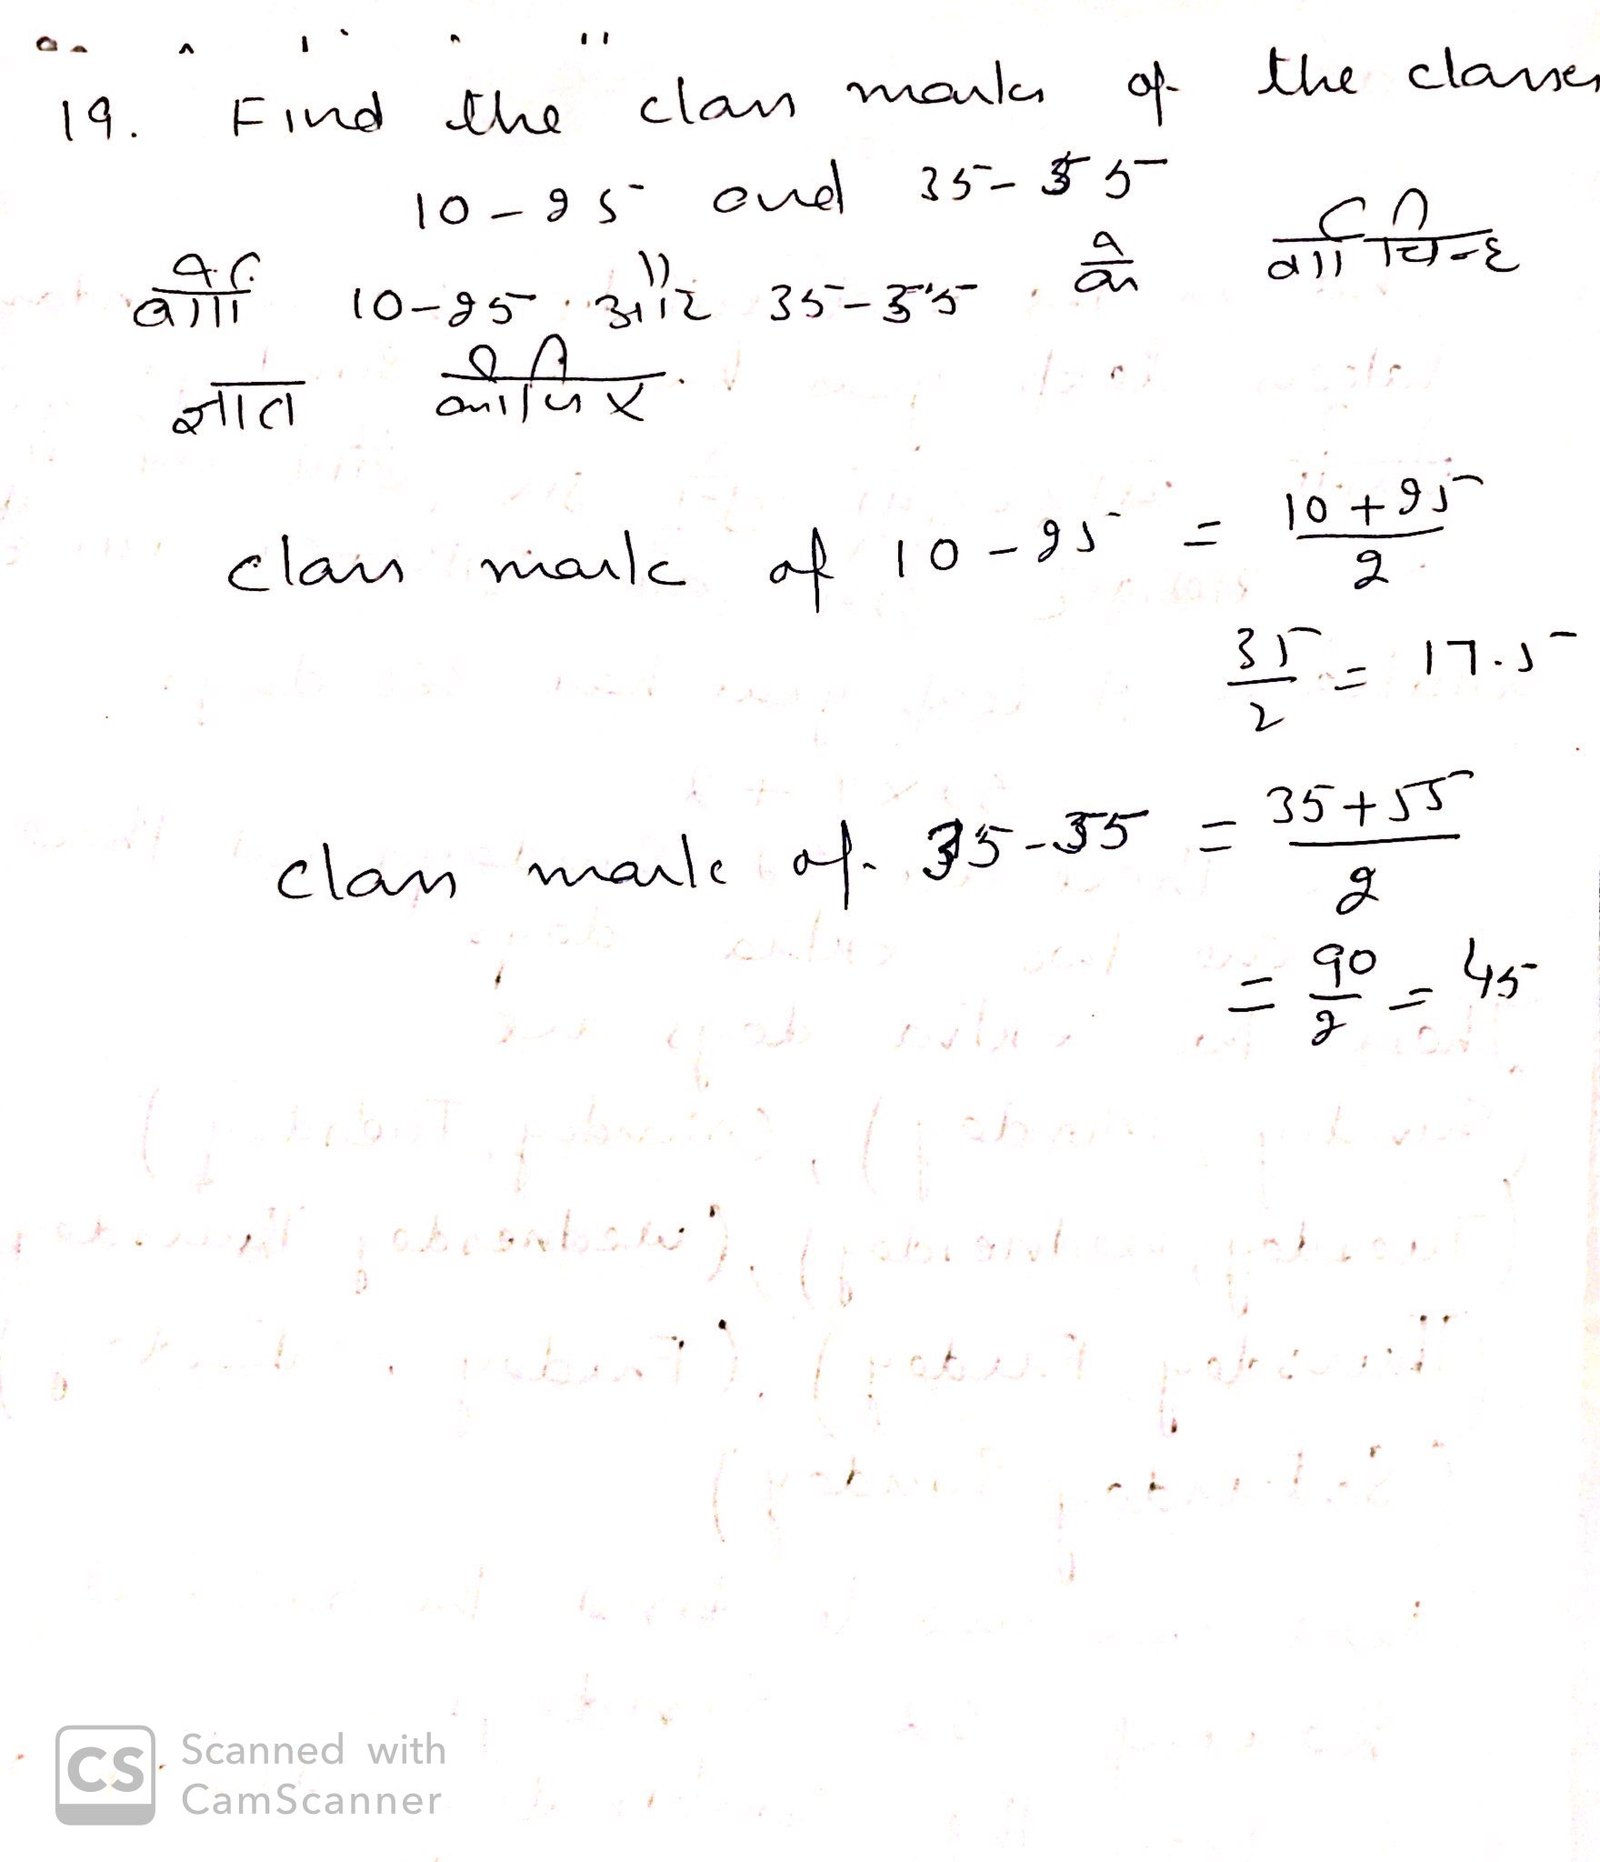 19. Find the class marks of the classes
10-25 and 35-55
वर्गों 10-25 और 35-55 के वर्ग चिन्ह
ज्ञात कीजिए.
class mark of 10-25 = 10+25/2
35/2 = 17.5
class mark of 35-55 = 35+55/2
= 90/2 = 45
CS Scanned with
CamScanner